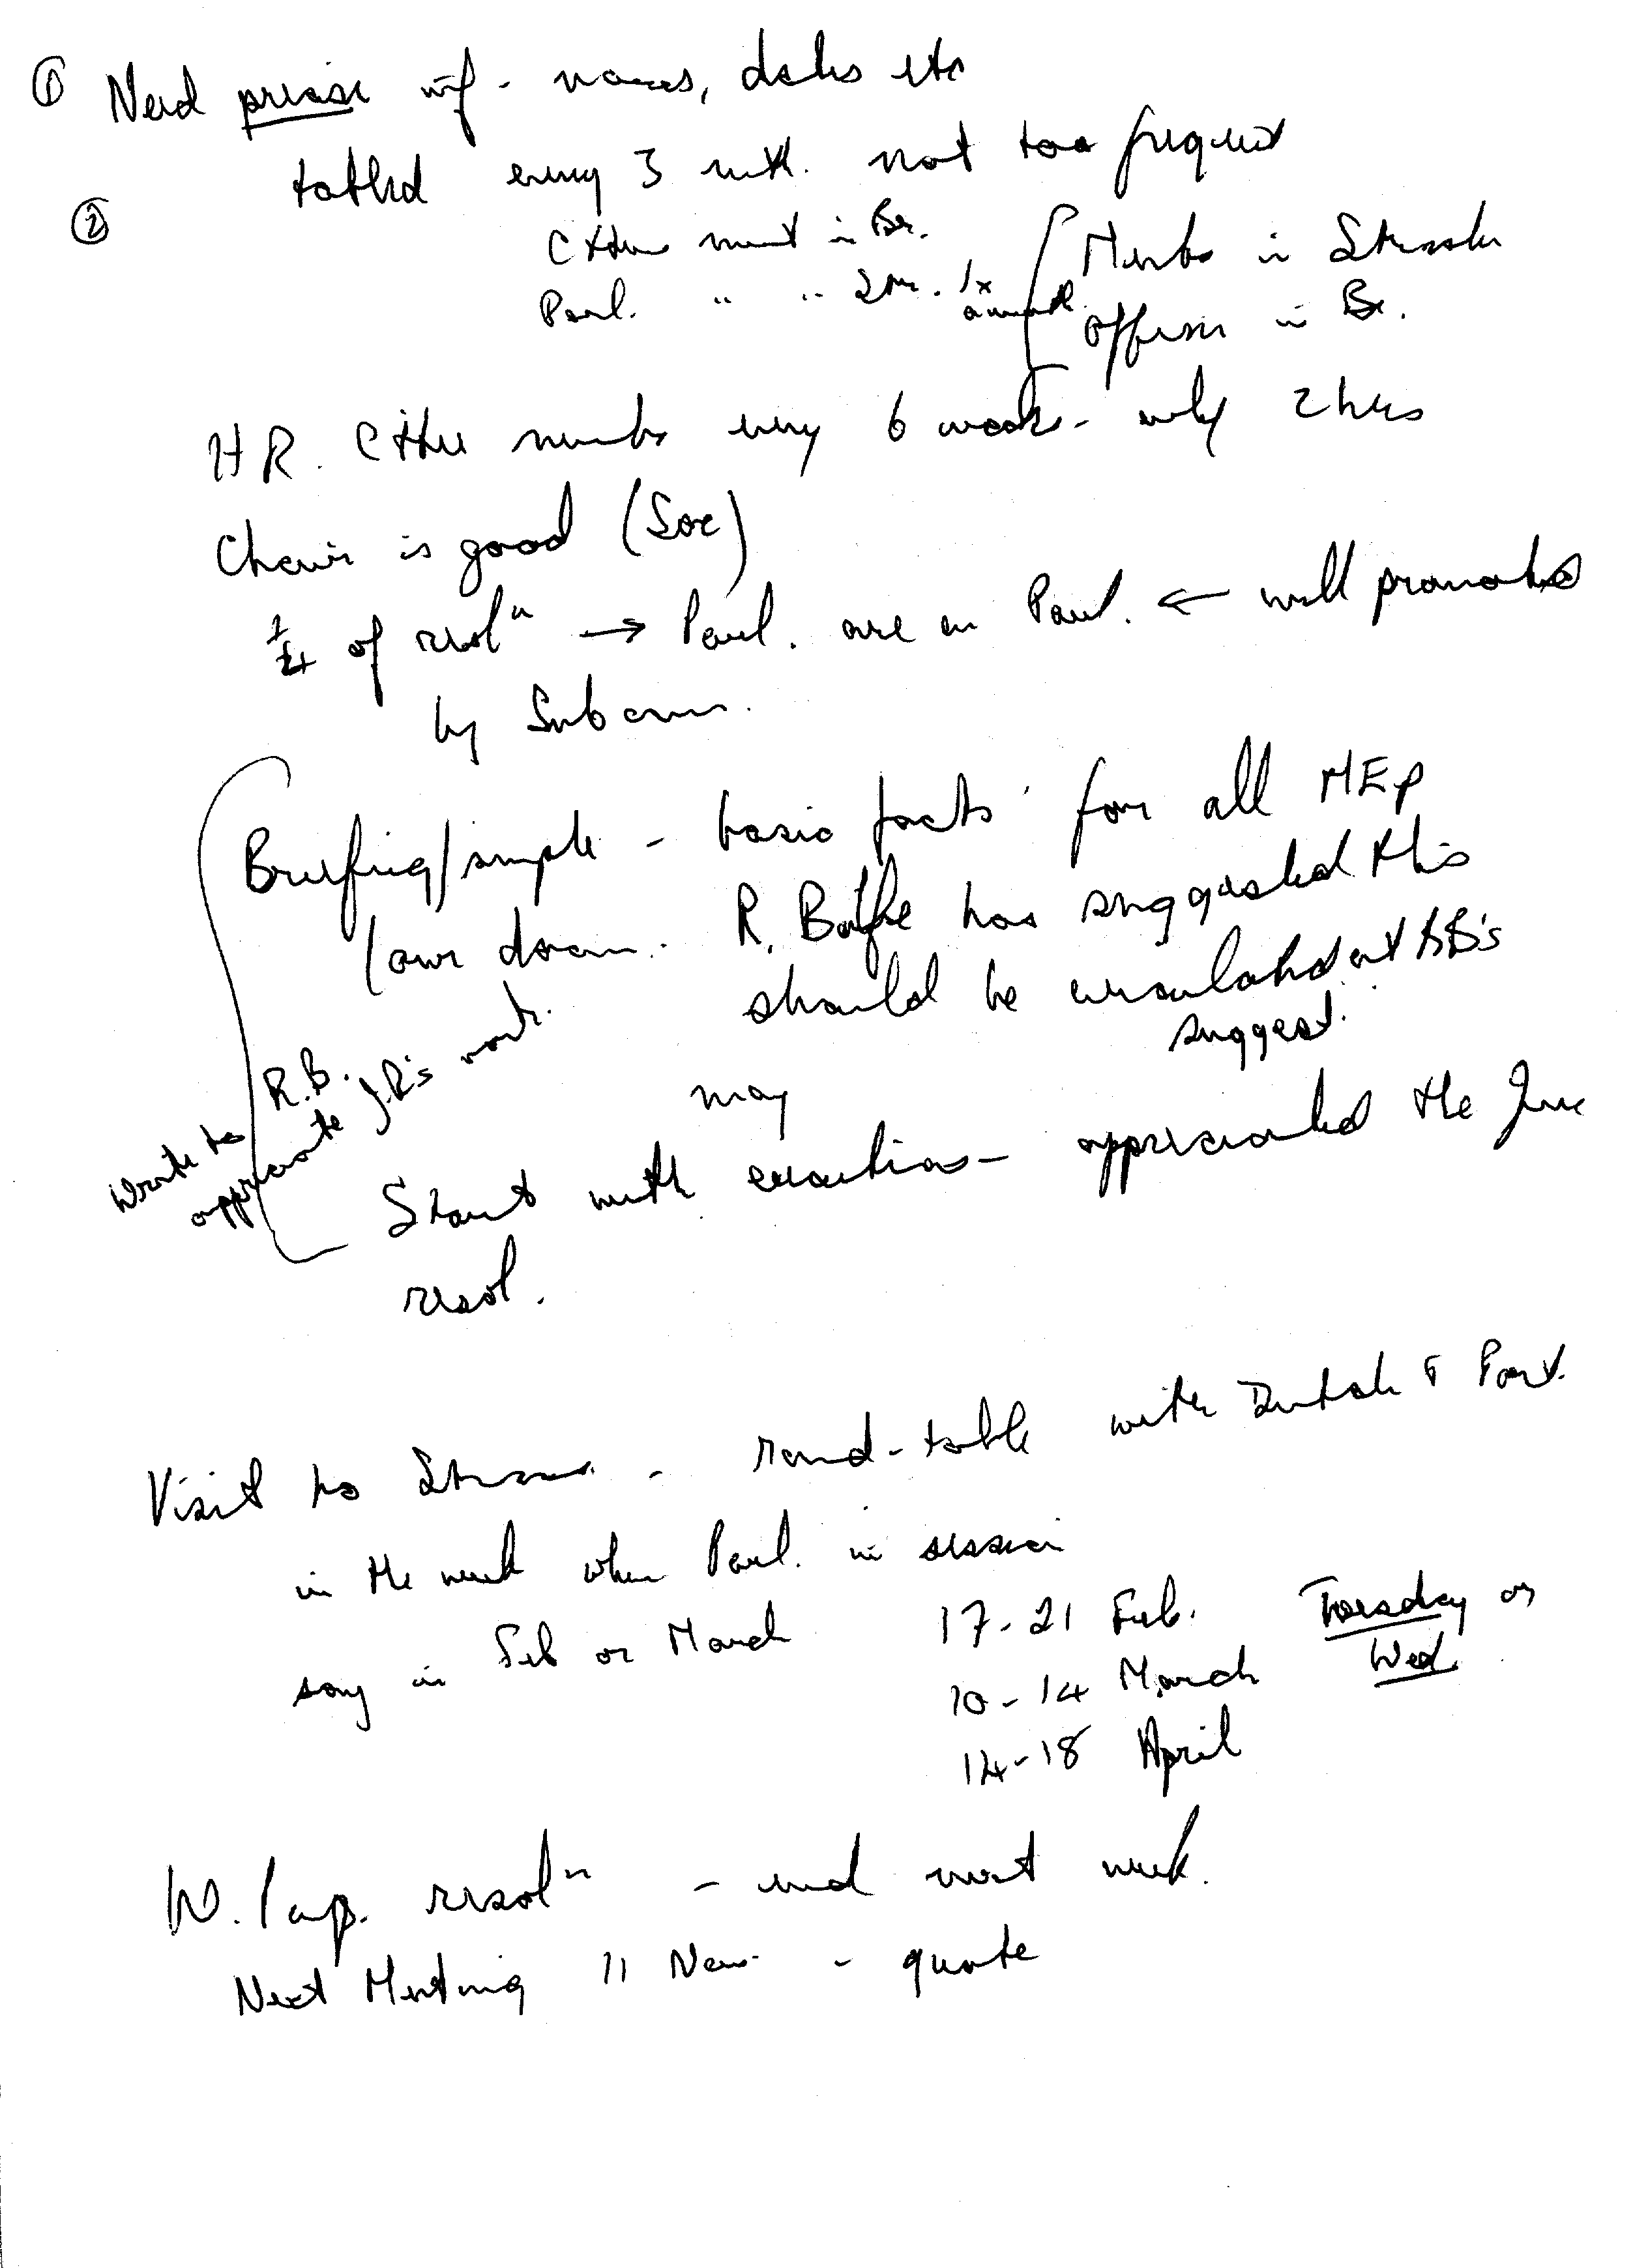 ① Need precise inf - names, dates etc
tabled every 3 mth. not too frequent
②
Cttee meet in Br.
Parl. " " Str. 1x a month
Meets in Strassb
Offices in Br.
HR. Cttee meets every 6 weeks - only 2 hrs
Chair is good (Soc)
of resolⁿ → Parl. are in Parl. ← well promoted
by Subcom.
Briefing/simple - basic facts for all MEP
down. R. Balfe has suggested this
should be circulated at RB's
suggest.
Write to R.B.
appreciate J.R's work.
may
Start with executions - appreciated the June
resol.
Visit to Strass. - round-table with Dutch & Port.
in the week when Parl. in session
say in Feb or March 17-21 Feb. Tuesday or
10-14 March Wed.
14-18 April
resolⁿ - end next week.
Next Meeting 11 Nov. - quote